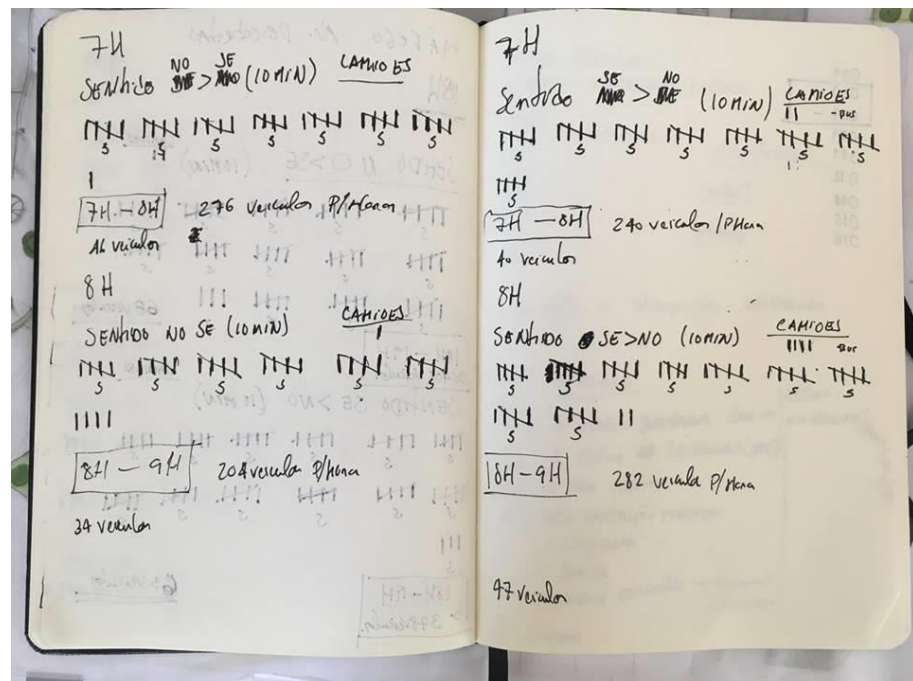 7H
NO SE
SENTIDO > (10MIN) CAMIOES
5 5 5 5 5 5
1
7H-8H 276 veiculos P/Hora
46 veiculos
8H
SENTIDO NO SE (10MIN) CAMIOES
5 5 5 5 5 5
8H-9H 204 veiculos P/Hora
34 veiculos
7H
SE NO
Sentido > (10MIN) CAMIOES
II -Bus
5 5 5 5 5 5 5
5
7H-8H 240 veiculos/PHora
40 veiculos
8H
SENTIDO SE>NO (10MIN) CAMIOES
IIII Bus
5 5 5 5 5 5
5 5
8H-9H 282 veiculos P/Hora
47 veiculos